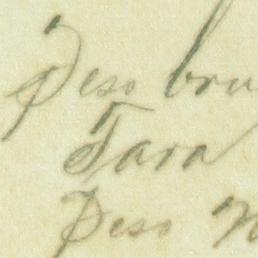 Peso bru
Tara
Peso n